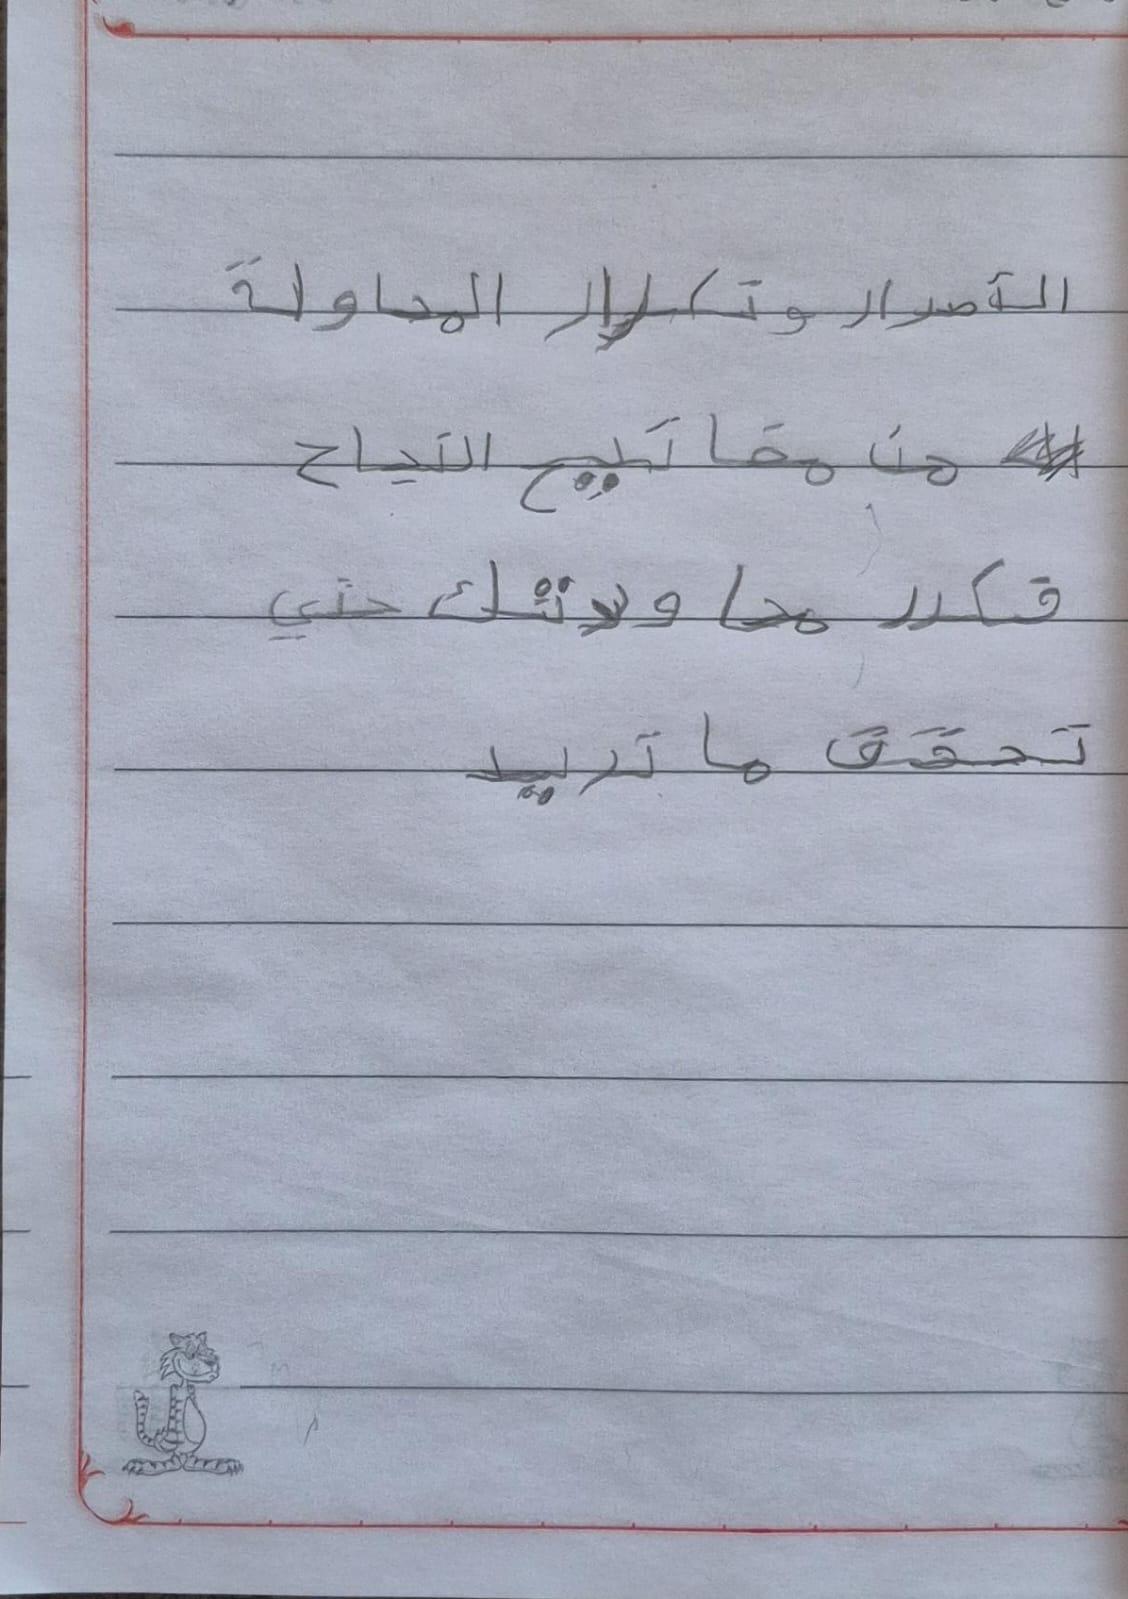 التصرار وتكرار المحاولة
من مفاتيح النجاح
فكرر محاولاتك حتي
تحقق ما تريد